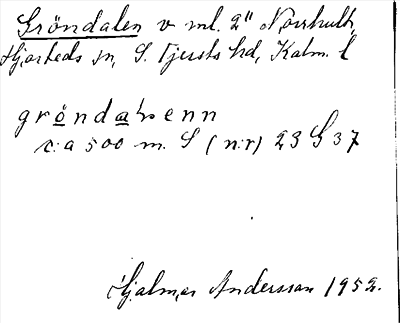 Gröndalen v ml. 2" Norrhult,
Hjorteds sn, S. Tjusts hd, Kalm. l
gröndaLenn
c:a 500 m. S (n:r) 23 G 37
Hjalmar Andersson 1952.